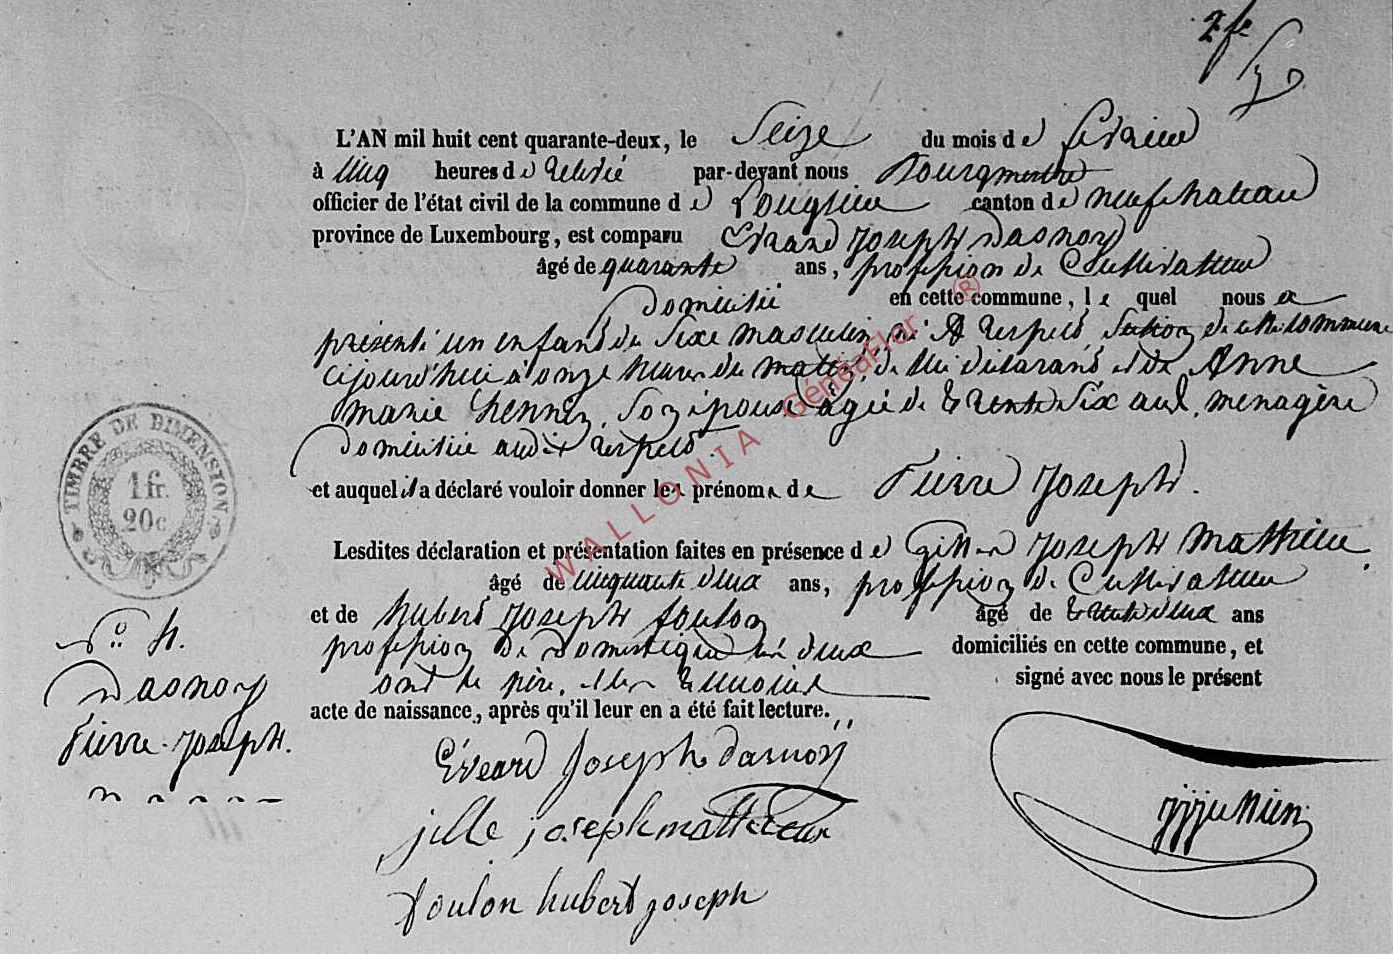 2 fe
L'AN mil huit cent quarante-deux, le Seize du mois de fevrier
à cinq heures de relevée par-devant nous Bourgmestre
officier de l'état civil de la commune de Longlier canton de neufchateau
province de Luxembourg, est comparu Evrard Joseph dasnoy
âgé de quarante ans, profession de Cultivateur
Domicilié en cette commune, le quel nous a
présenté un enfant du Sexe masculin né A respelt, Section de cette commune
cejourd'hui à onze heures du matin, de lui déclarant et de Anne
marie henning, Son épouse âgée de trente Six ans, menagère
Domiciliée audit respelt.
et auquel il a déclaré vouloir donner les prénoms de Pierre Joseph.
Lesdites déclaration et présentation faites en présence de gille Joseph Mathieu
âgé de cinquante deux ans, profession de Cultivateur
et de hubert Joseph foulon âgé de trente deux ans
profession de domestique les deux domiciliés en cette commune, et
ont le père, et les temoins signé avec nous le présent
acte de naissance, après qu'il leur en a été fait lecture.
TIMBRE DE DIMENSION
1 fr.
20c
No 4.
Dasnoy
Pierre-Joseph.
Evrard Joseph dasnoÿ
jille joseph mathieu
foulon hubert joseph
WALLONIA GénéaFlor ®